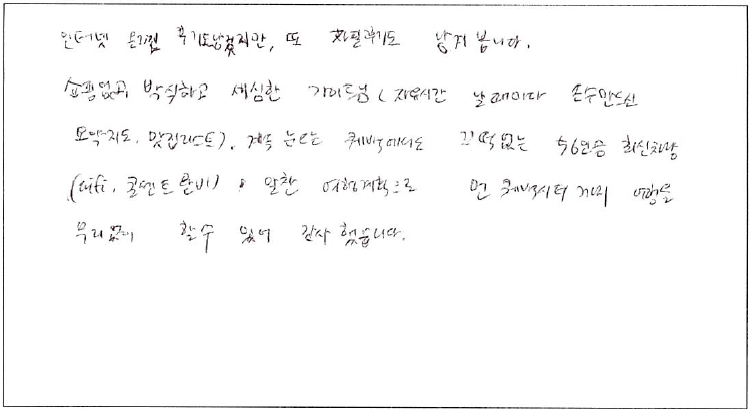 인터넷 후기도 남겼지만, 또 자필후기도 남겨 봅니다.
쇼핑없고 박식하고 세심한 가이드님 (자유시간 날 때마다 손수만드신
요약지도, 맛집리스트). 계속 눈오는 퀘벡에서도 끄떡없는 56인승 최신차량
(wifi, 콘센트 완비) 알찬 여행계획으로 먼 퀘벡시티 까지 여행을
무리없이 할수 있어 감사 했습니다.